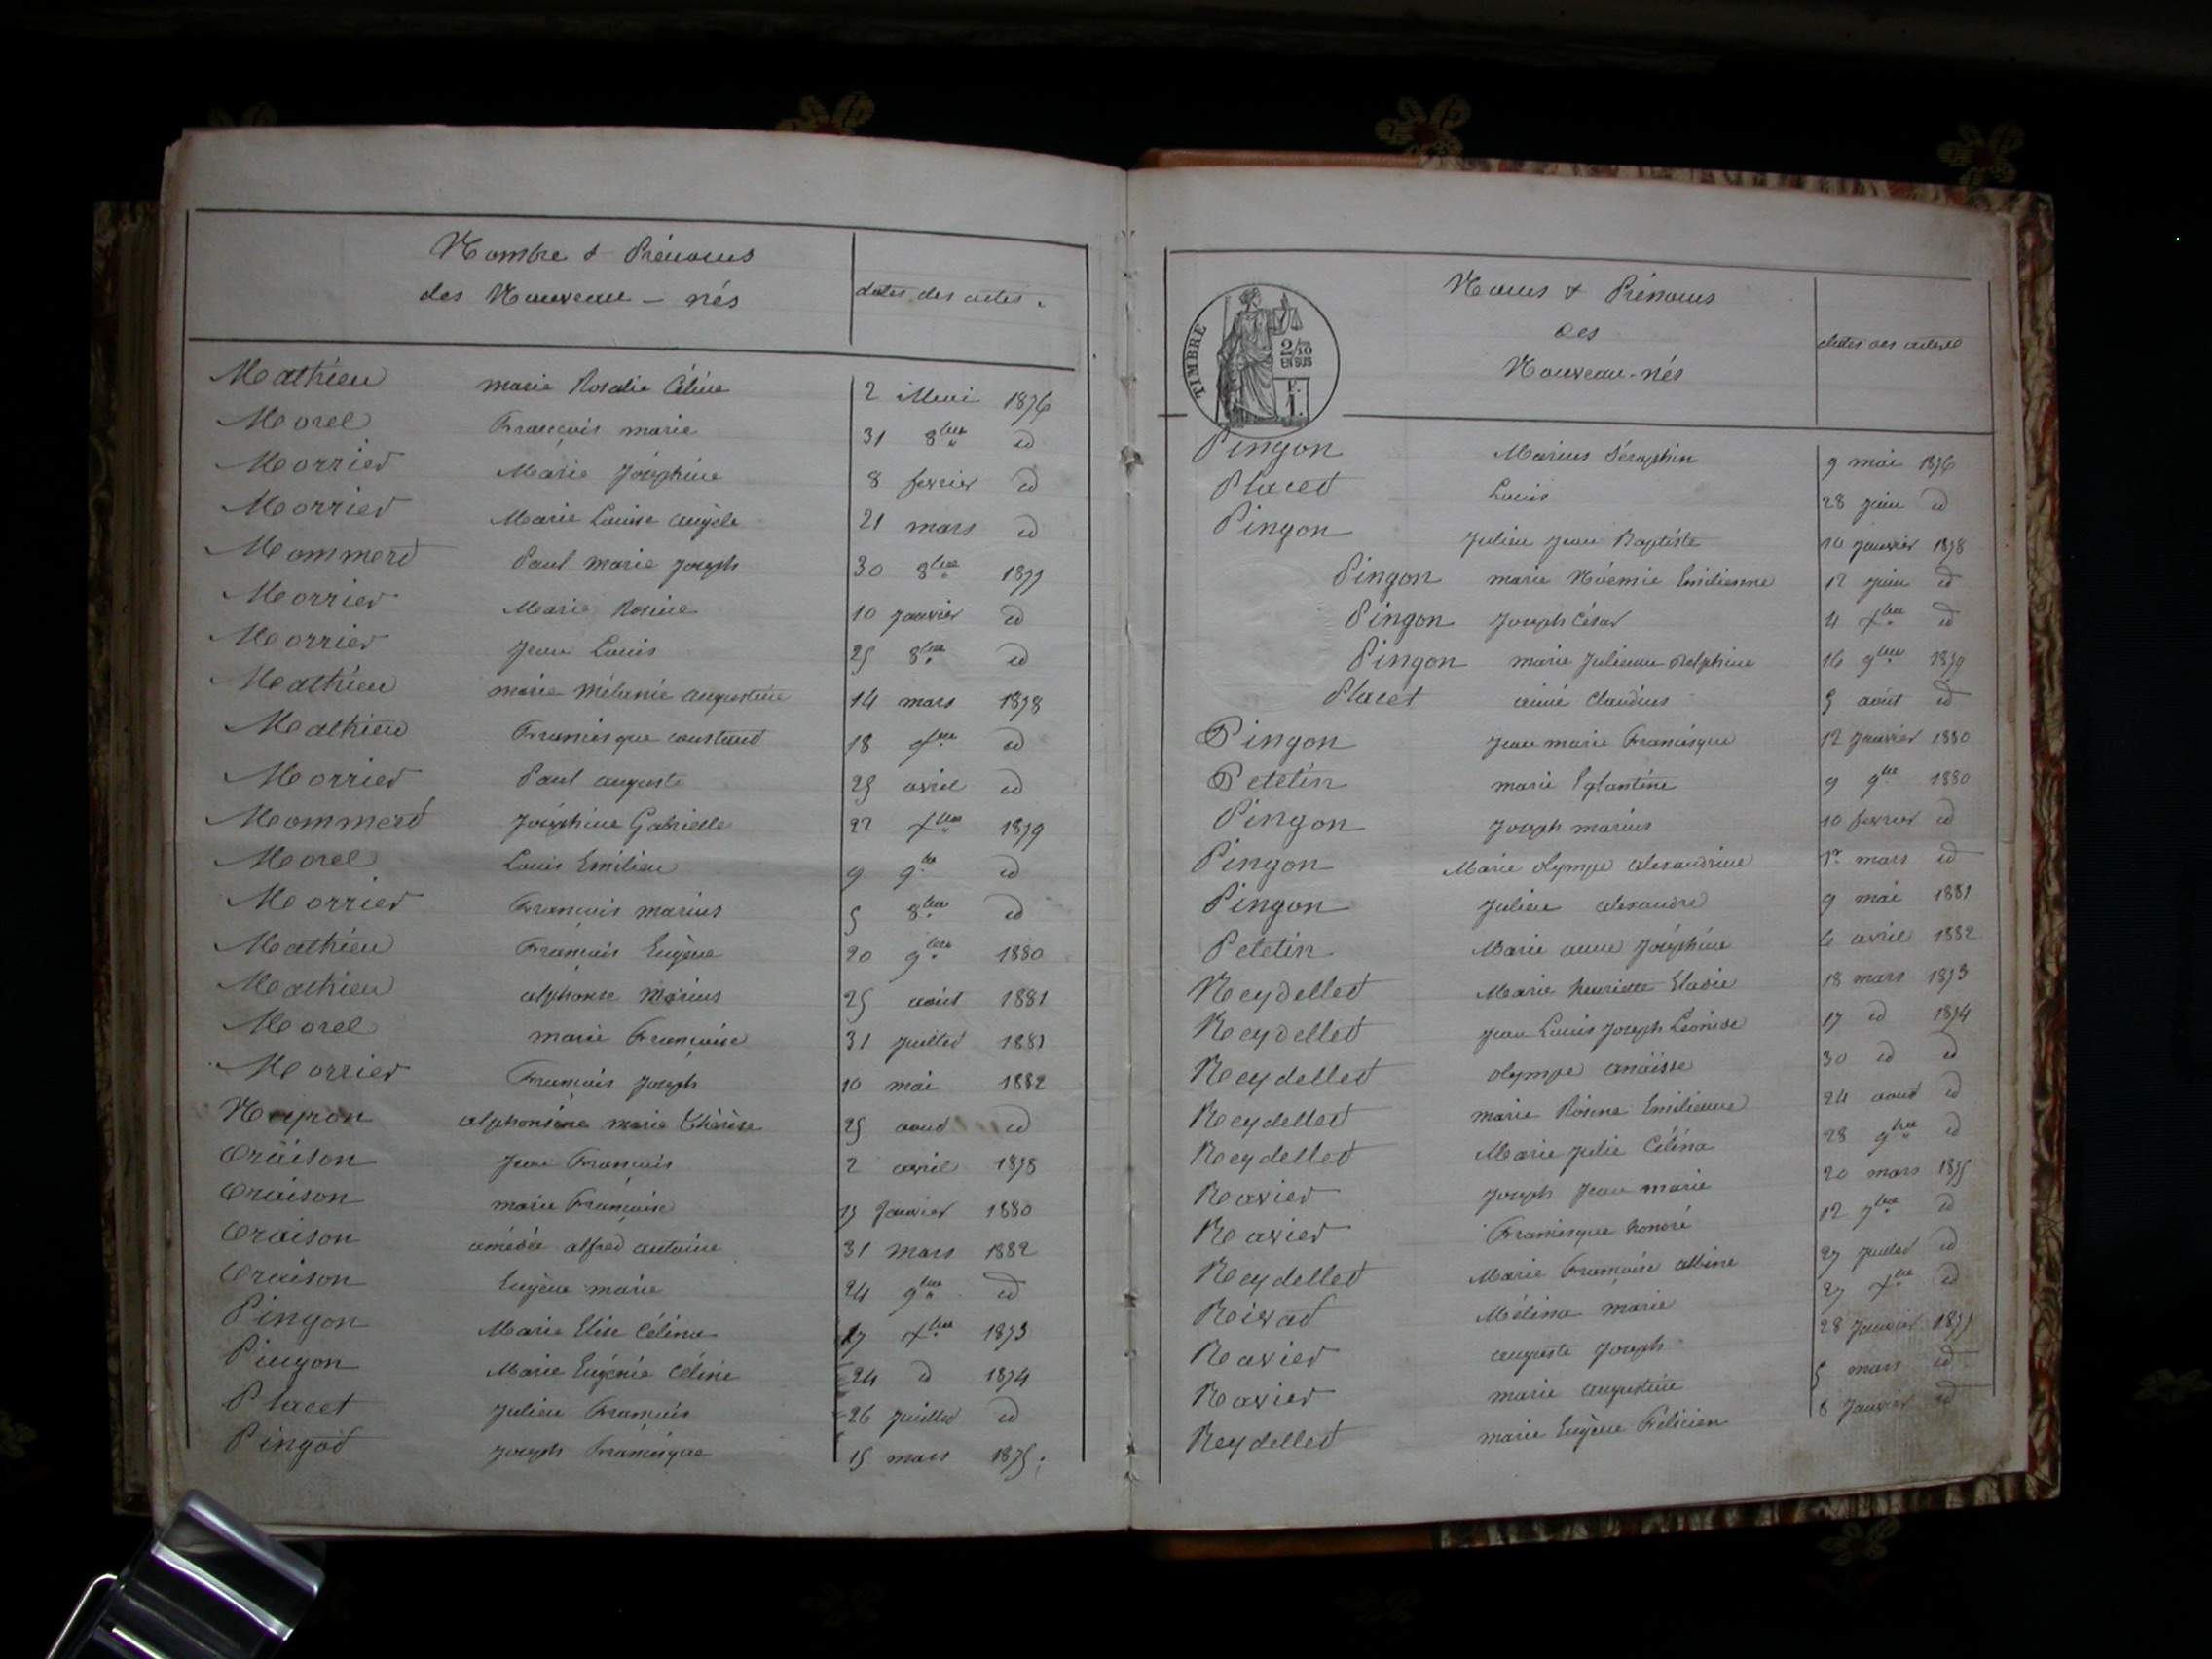 Nombre & Prénoms
des Nouveau - nés
dates des actes.
Mathieu marie Rosalie Céline 2 Mai 1876
Morel François marie 31 8bre id
Morrier Marie Joséphine 8 fevrier id
Morrier Marie Louise Angèle 21 mars id
Mommert Paul marie Joseph 30 8bre 1877
Morrier Marie Rosine 10 Janvier id
Morrier Jean Louis 25 8bre id
Mathieu marie Mélanie augustine 14 mars 1878
Mathieu Francisque constant 18 Xbre id
Morrier Paul auguste 25 avril id
Mommert Joséphine Gabrielle 27 Xbre 1879
Morel Louis Emilien 9 9bre id
Morrier François marius 5 8bre id
Mathieu François Eugène 20 9bre 1880
Mathieu alphonse Marius 25 août 1881
Morel marie Françoise 31 Juillet 1881
Morrier François Joseph 10 mai 1882
Neyron alphonsine marie Thérèse 25 aout id
Oraison Jean François 2 avril 1878
Oraison marie Françoise 15 Janvier 1880
Oraison amédée alfred antoine 31 Mars 1882
Oraison Eugène marie 24 9bre id
Pingon Marie Elise Célina 17 Xbre 1873
Pingon Marie Eugénie Céline 24 d 1874
Placet Julien François 26 Juillet id
Pingod Joseph Francisque 15 mars 1875
TIMBRE
2/10
EN SUS
F.
1.
Noms & Prénoms
des
Nouveau-nés
dates des actes
Pingon Marius Séraphin 9 mai 1876
Placet Louis 28 Juin id
Pingon Julien Jean Baptiste 10 Janvier 1878
Pingon marie Noémie Emilienne 12 Juin id
Pingon Joseph César 4 Xbre id
Pingon marie Julienne Delphine 16 9bre 1879
Placet aimé Claudius 5 août id
Pingon Jean marie Francisque 12 Janvier 1880
Petetin marie Eglantine 9 9bre 1880
Pingon Joseph marius 10 fevrier id
Pingon Marie olympe alexandrine 1er mars id
Pingon Julien alexandre 9 mai 1881
Petetin Marie anne Joséphine 6 avril 1882
Reydellet Marie henriette Elodie 18 mars 1873
Reydellet Jean Louis Joseph Léonide 17 id 1874
Reydellet olympe anaïsse 30 id id
Reydellet marie Rosine Emilienne 24 aout id
Reydellet Marie Julie Célina 28 9bre id
Ravier Joseph Jean marie 20 mars 1875
Ravier Francisque honoré 12 7bre id
Reydellet Marie Françoise albine 27 Juillet id
Reivad Mélina marie 27 Xbre id
Ravier auguste Joseph 28 Janvier 1877
Ravier marie augustine 5 mars id
Reydellet marie Eugène Félicien 6 Janvier id